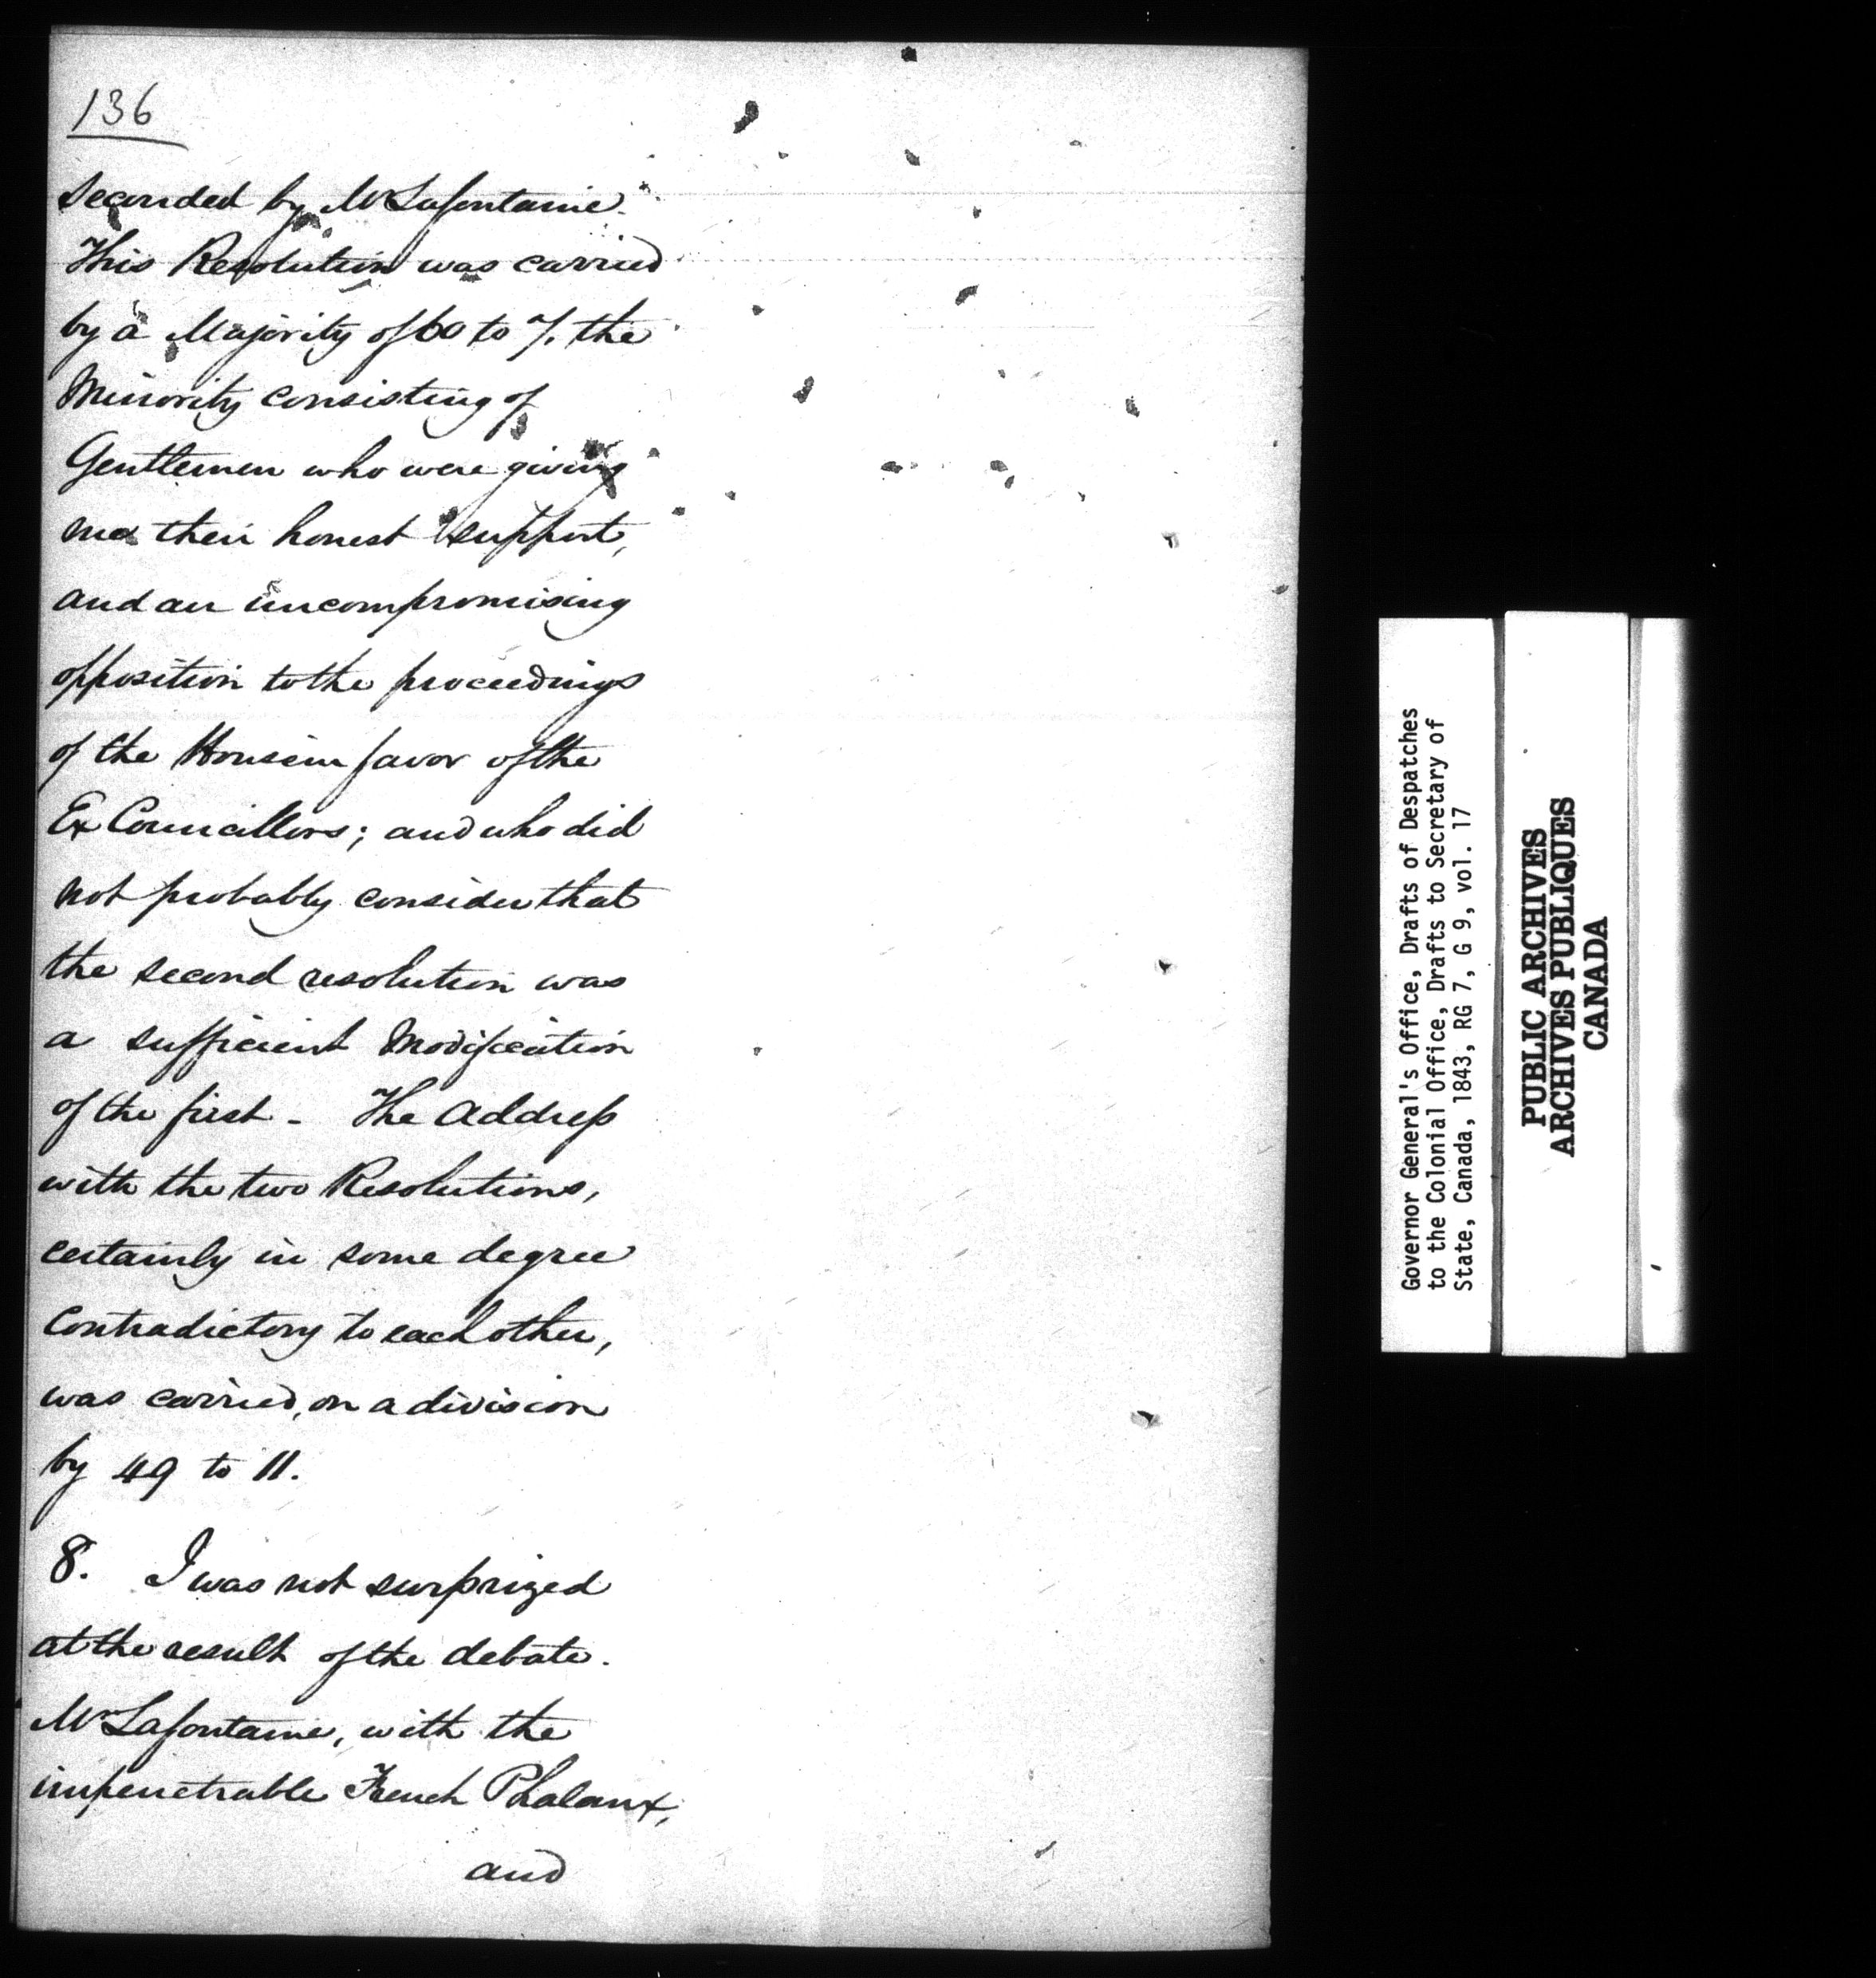 136
seconded by Mr Lafontaine.
This Resolution was carried
by a Majority of 60 to 7, the
Minority consisting of
Gentlemen who were giving
me their honest support,
and an uncompromising
opposition to the proceedings
of the House in favor of the
Ex Councillors; and who did
not probably consider that
the second resolution was
a sufficient Modification
of the first - The Address
with the two Resolutions,
certainly in some degree
Contradictory to each other,
was carried, on a division
by 49 to 11.
8. I was not surprized
at the result of the debate.
Mr Lafontaine, with the
impenetrable French Phalanx,
and
Governor General's Office, Drafts of Despatches
to the Colonial Office, Drafts to Secretary of
State, Canada, 1843, RG 7, G 9, vol. 17
PUBLIC ARCHIVES
ARCHIVES PUBLIQUES
CANADA